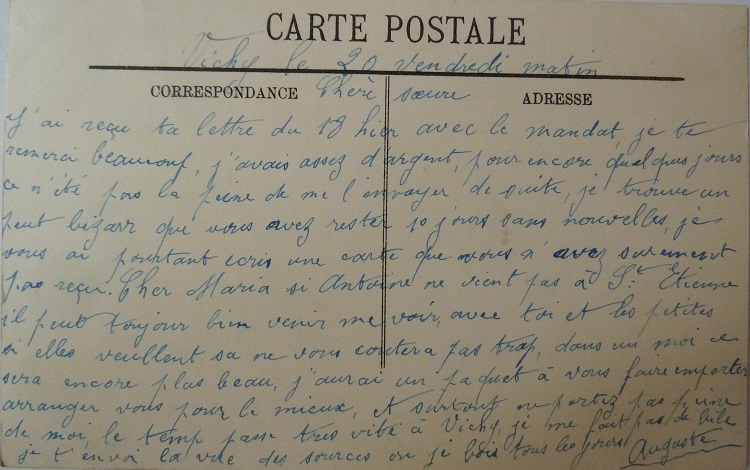 CARTE POSTALE
Vichy le 20 vendredi matin
CORRESPONDANCE Cherè sœure ADRESSE
J'ai reçu ta lettre du 18 hier avec le mandat, je te
remerci beaucouf, j'avais assez d'argent, pour encore quelques jours
ce n'été pas la peine de me l'envoyer de suite, je trouve un
peut bizarr que vous avez rester 10 jours sans nouvelles, je
vous ai pourtant ecris une carte que vous n'avez surement
pas reçu. Cher Maria si Antoine ne vient pas à St Etienne
il peut toujour bien venir me voir, avec toi et les petites
si elles veuillent sa ne vous coutera pas trop, dans un moi ce
sera encore plus beau, j'aurai un paquet à vous faire emporter
arranger vous pour le mieux, et surtout ne portez pas peine
de moi, le temp passe tres vite à Vichy, je me fait pas de bile
je t'envoi la vue des sources ou je bois tous les jours Auguste